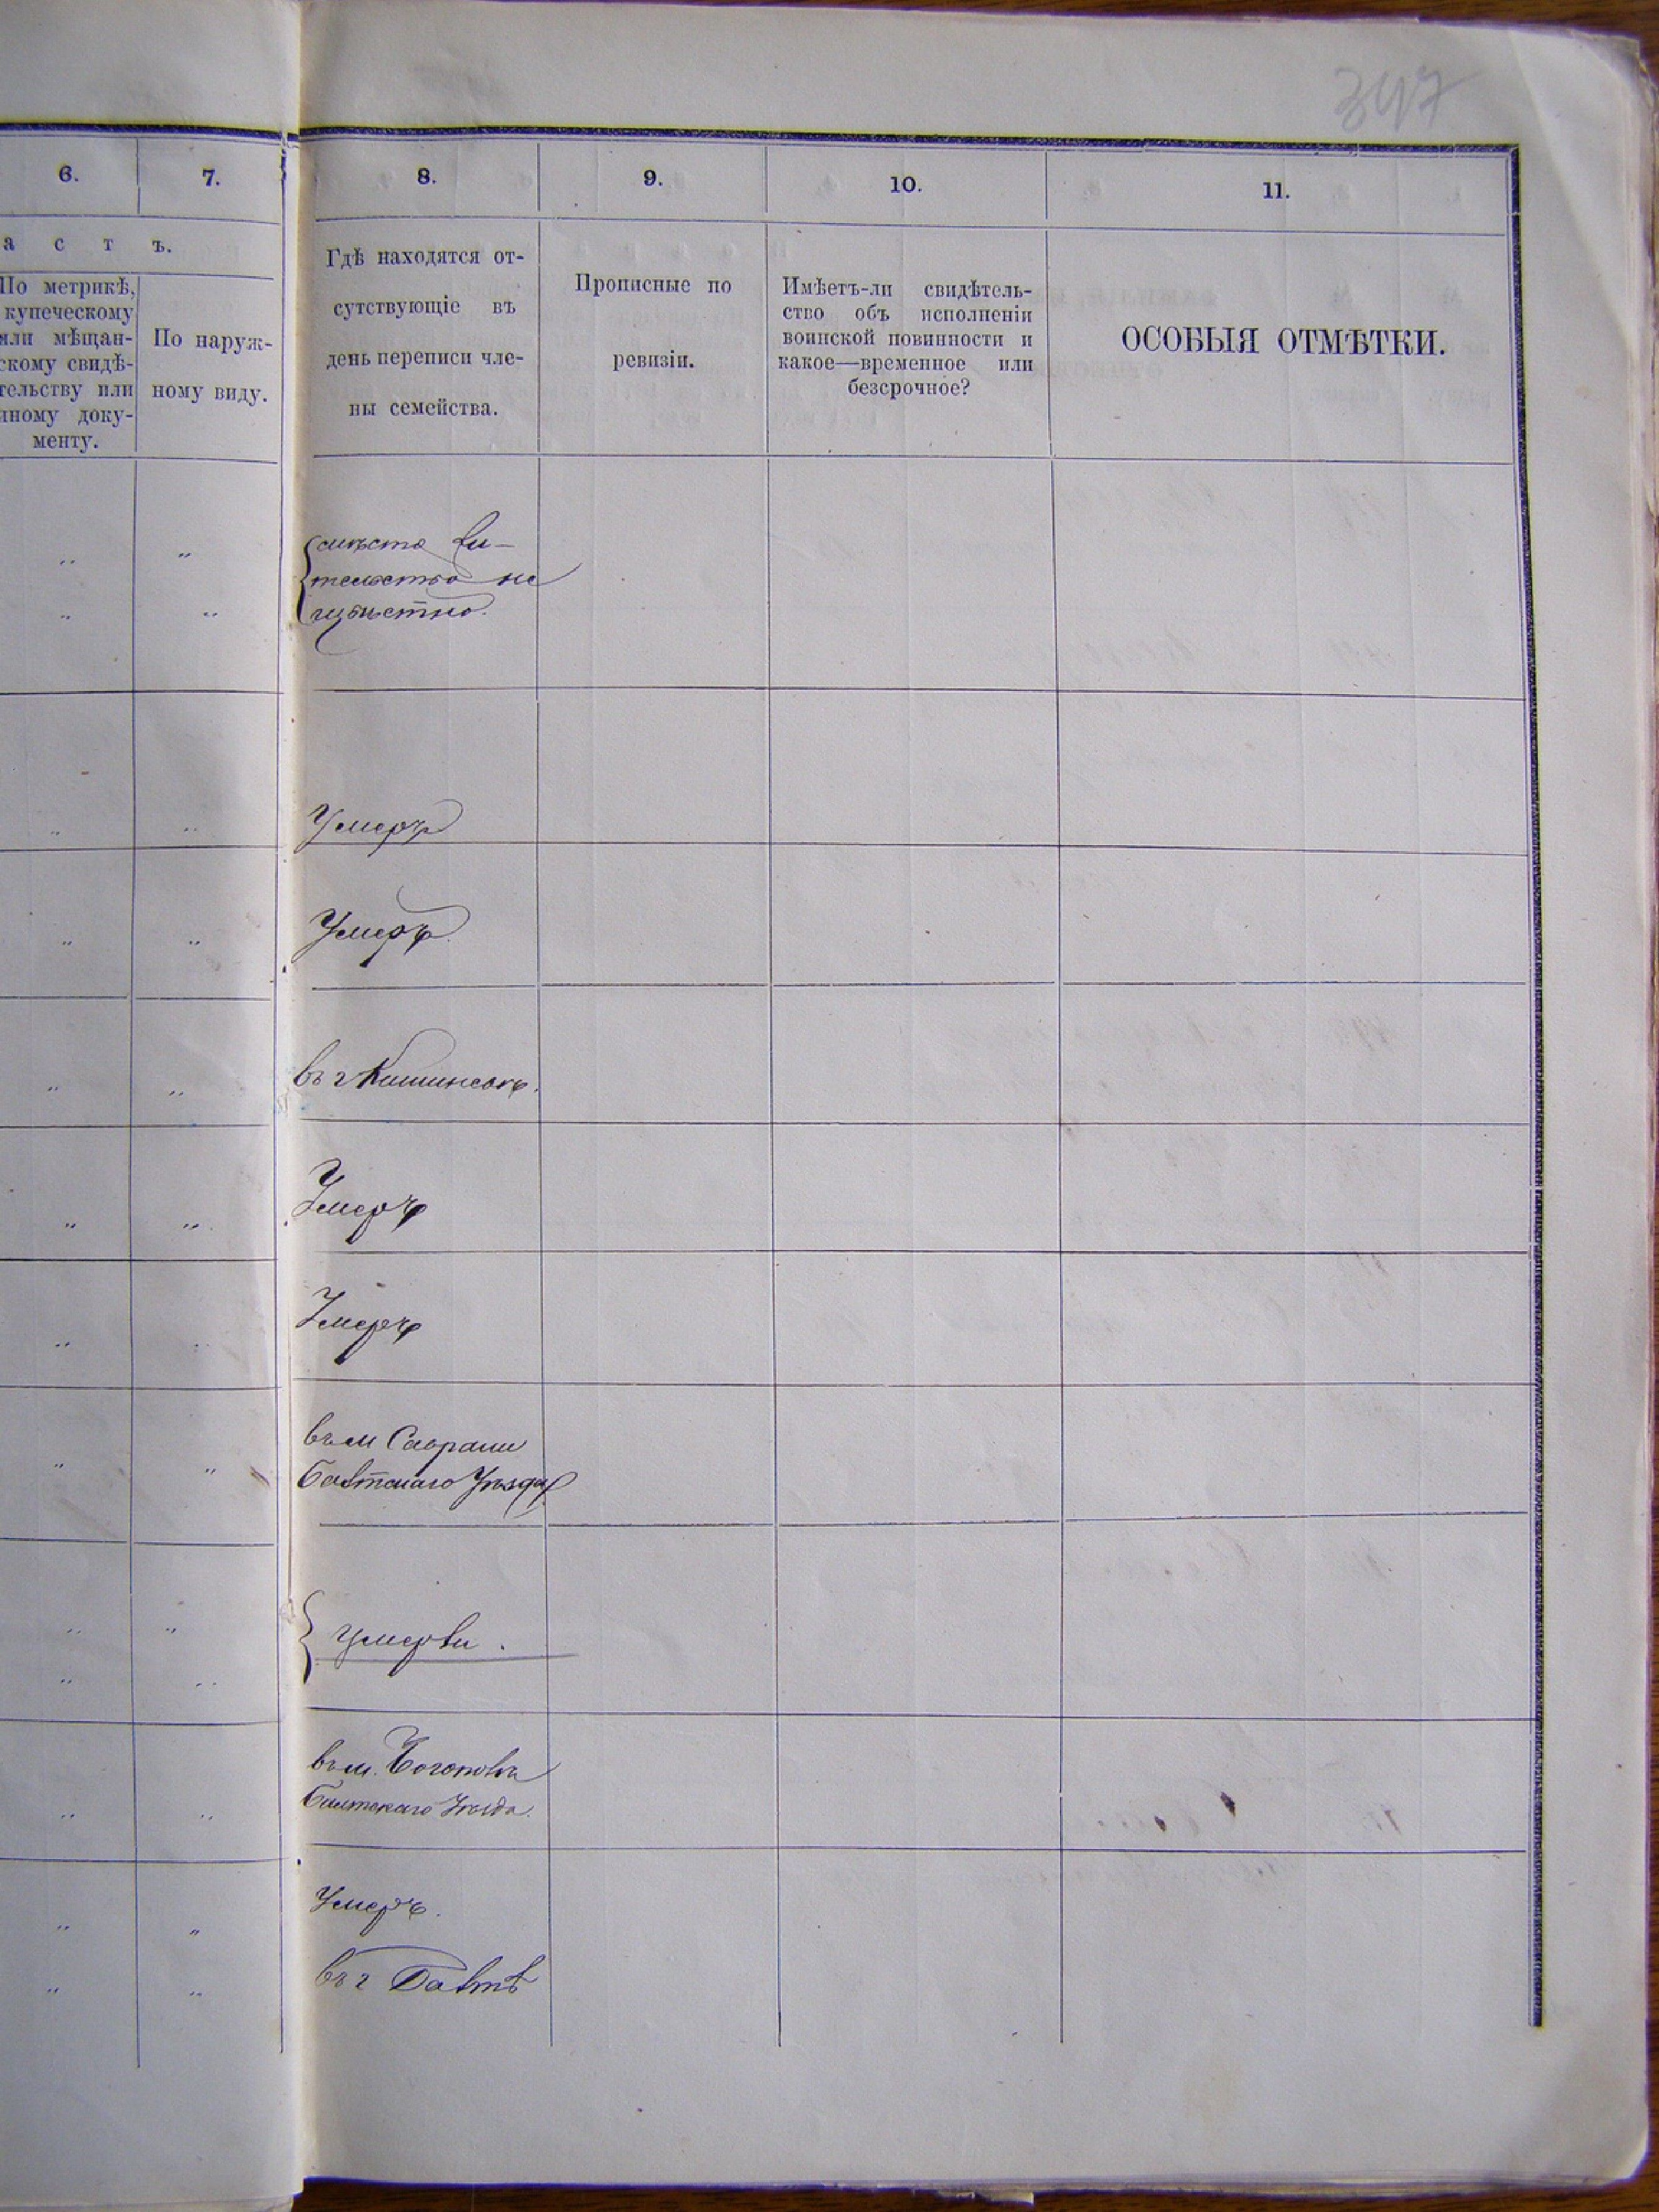 347
6. 7. 8. 9. 10. 11.
а с т ъ.
По метрикѣ,
купеческому
или мѣщан-
скому свидѣ-
тельству или
иному доку-
менту.
По наруж-
ному виду.
Гдѣ находятся от-
сутствующіе въ
день переписи чле-
ны семейства.
Прописные по
ревизіи.
Имѣетъ-ли свидѣтель-
ство объ исполненіи
воинской повинности и
какое—временное или
безсрочное?
ОСОБЫЯ ОТМѢТКИ.
" "
" "
мѣсто жи-
тельство не
извѣстно.
" " Умеръ
" " Умеръ.
" " въ г Кишиневѣ.
" " Умеръ
" " Умеръ
въ м Саврани
" " Балтскаго Уѣзда
" "
умерли.
" "
въ м.
" " Балтскаго Уѣзда.
" " Умеръ.
" " въ г Балтѣ